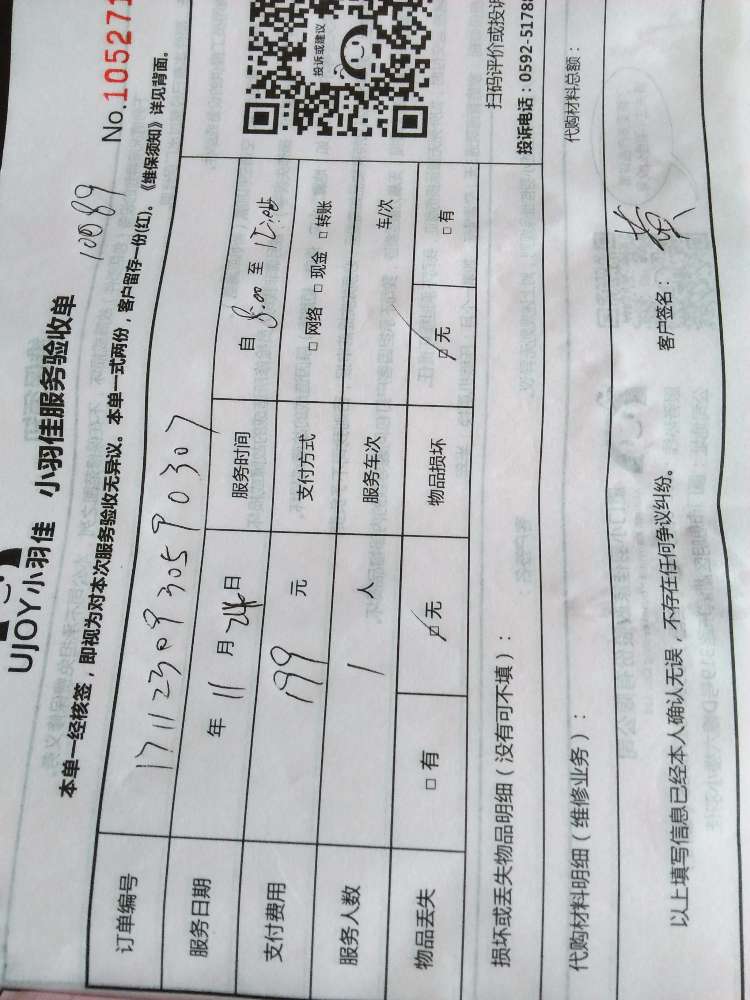 UJOY小羽佳 小羽佳服务验收单
10089
No.105271
本单一经核签，即视为对本次服务验收无异议。本单一式两份，客户留存一份(红)。《维保须知》详见背面。
订单编号 171123093059 0307
服务日期 年 11 月 24 日 服务时间 自 8:00 至 12:00
支付费用 199 元 支付方式 □ 网络 □ 现金 □ 转账
服务人数 1 人 服务车次 车/次
物品丢失 □ 有 □ 无 物品损坏 □ 无 □ 有
投诉或建议
扫码评价或投诉
投诉电话：0592-5178
损坏或丢失物品明细（没有可不填）：
代购材料明细（维修业务）：
代购材料总额：
以上填写信息已经本人确认无误，不存在任何争议纠纷。
客户签名： 黄